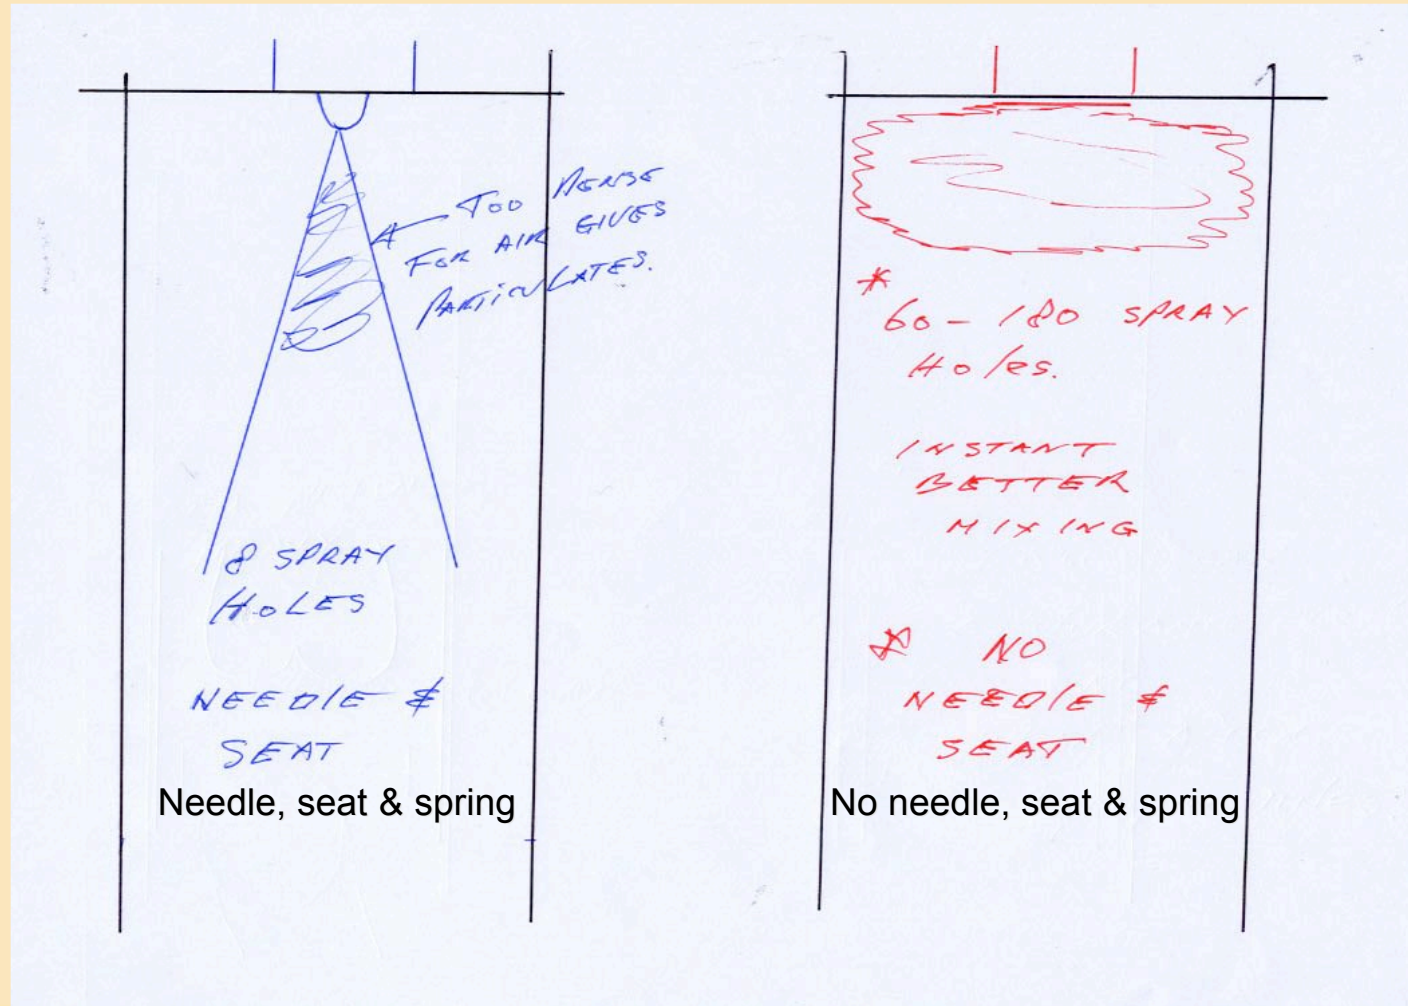 TOO DENSE
FOR AIR GIVES
PARTICULATES.
8 SPRAY
HOLES
NEEDLE &
SEAT
Needle, seat & spring
* 60 - 180 SPRAY
Holes.
INSTANT
BETTER
MIXING
* NO
NEEDLE &
SEAT
No needle, seat & spring